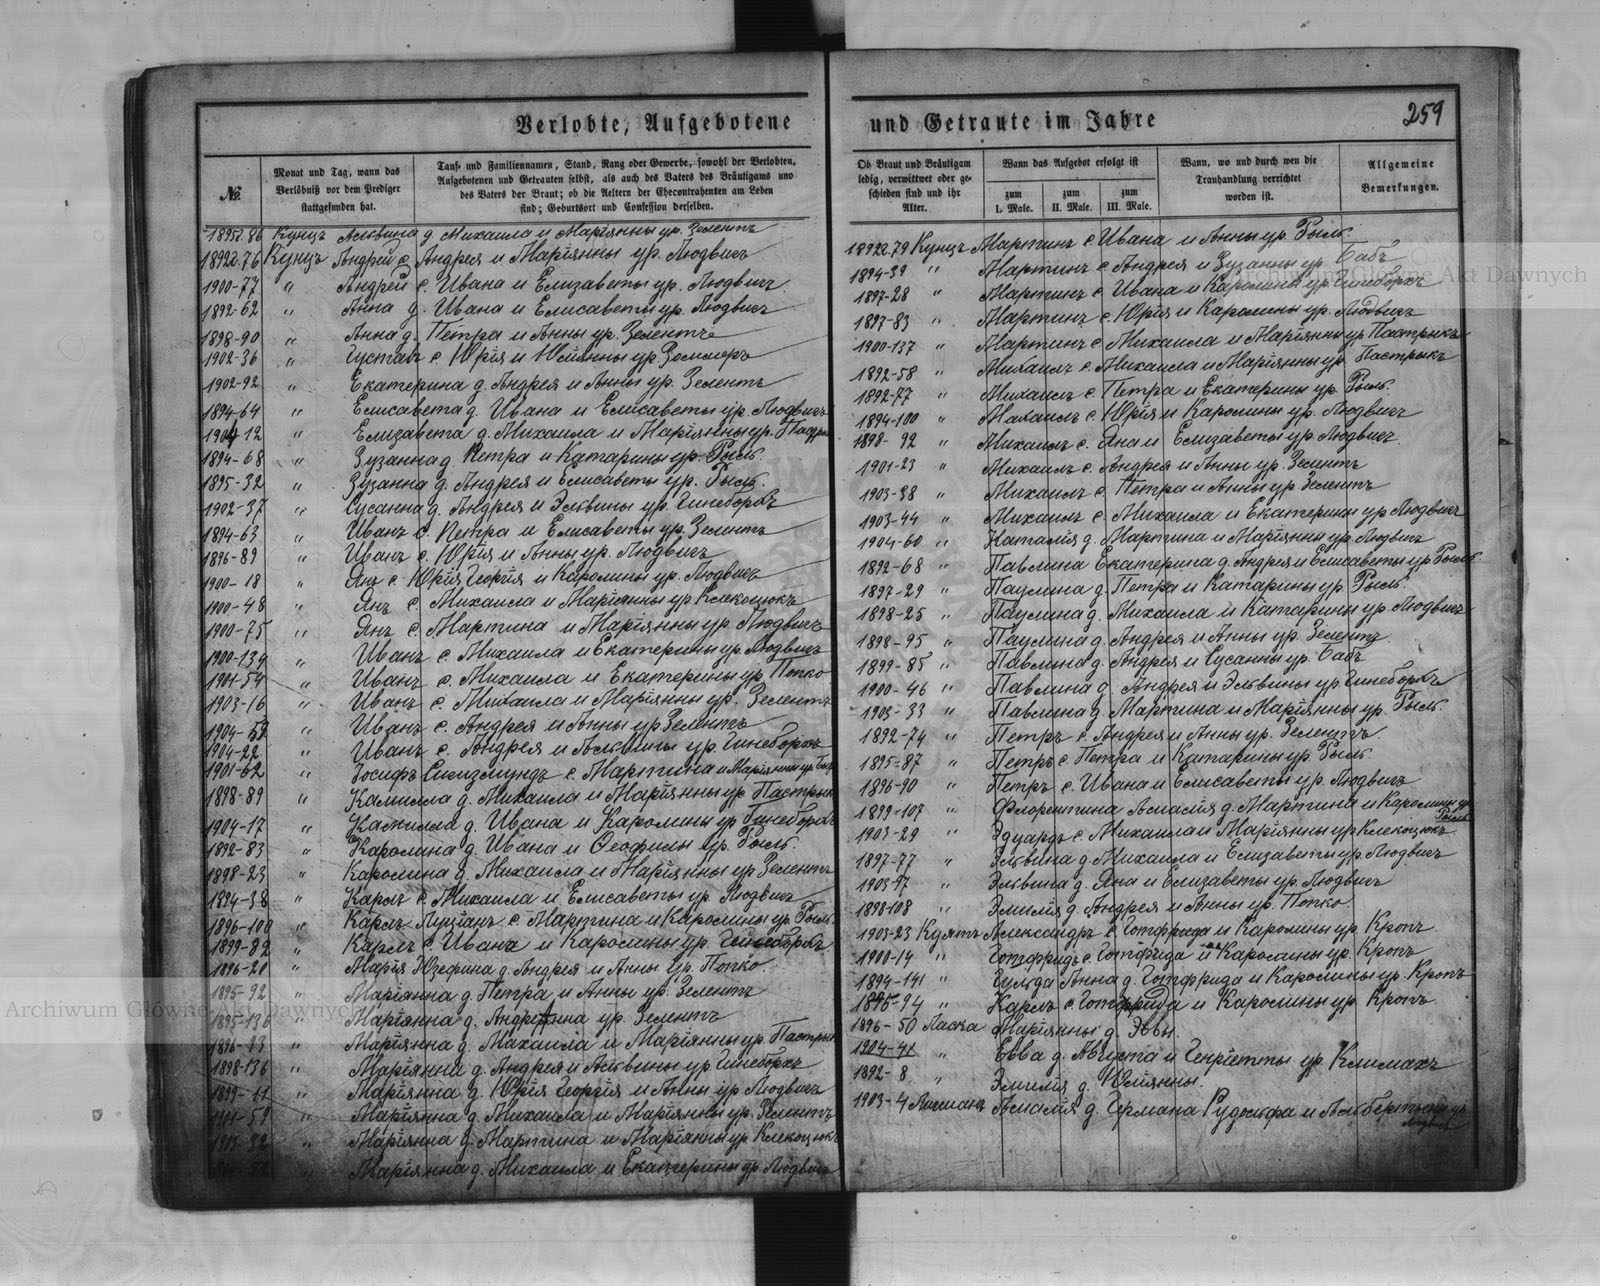 Verlobte, Aufgebotene
№.
Monat und Tag, wann das
Verlöbniß vor dem Prediger
stattgefunden hat.
Tauf- und Familiennamen, Stand, Rang oder Gewerbe, sowohl der Verlobten,
Aufgebotenen und Getrauten selbst, als auch des Vaters des Bräutigams und
des Vaters der Braut; ob die Aeltern der Ehecontrahenten am Leben
sind; Geburtsort und Confession derselben.
Кунцъ Альвина д Михаила и Маріянны ур. Зелентъ
1892г.76 Кунцъ Андрей с. Андрея и Маріянны ур. Людвигъ
1900-77 " Андрей с. Ивана и Елизаветы ур. Людвигъ
1892-62 " Анна д. Ивана и Елисаветы ур. Людвигъ
1898-90 " Анна д. Петра и Анны ур. Зелентъ
1902-36 " Густавъ с. Юрія и Юліянны ур.
1902-92 " Екатерина д. Андрея и Анны ур. Зелентъ
1894-64 " Елисавета д. Ивана и Елисаветы ур. Людвигъ
1904-12 " Елизавета д. Михаила и Маріянны ур.
1894-68 " Зузанна д. Петра и Катарины ур. Рыль.
1895-32 " Зузанна д. Андрея и Елисаветы ур. Рыль.
1902-37 " Сусанна д. Андрея и Эльвины ур. Гинеборхъ
1894-63 " Иванъ с. Петра и Елисаветы ур. Зелентъ
1896-89 " Иванъ с. Юрія и Анны ур. Людвигъ
1900-18 " Янъ с. Юрія Георгія и Каролины ур. Людвигъ
1900-48 " Янъ с. Михаила и Маріянны ур. Клекоцюкъ
1900-75 " Янъ с. Мартина и Маріянны ур. Людвигъ
1900-139 " Иванъ с. Михаила и Екатерины ур. Людвигъ
1901-54 " Иванъ с. Михаила и Екатерины ур. Попко
1903-16 " Иванъ с. Михаила и Маріянны ур. Зелентъ
1904-52 " Иванъ с. Андрея и Анны ур. Зелентъ
1904-22 " Иванъ с. Андрея и Альвины ур. Гинеборхъ
1901-62 " Іосифъ Сигизмундъ с. Мартина и Маріянны ур.
1898-89 " Камилла д. Михаила и Маріянны ур. Пастрык
1904-17 " Камилла д. Ивана и Каролины ур. Гинеборхъ
1892-83 " Каролина д. Ивана и Ѳеофилы ур. Рыль.
1898-23 " Каролина д. Михаила и Маріянны ур. Зелентъ
1894-38 " Карлъ с. Михаила и Елисаветы ур. Людвигъ
1896-100 " Карлъ Луціанъ с. Мартина и Каролины ур. Рыль.
1899-82 " Карлъ с. Ивана и Каролины ур. Гинеборхъ
1896-20 " Марія Юзефина д. Андрея и Анны ур. Попко.
1895-92 " Маріанна д. Петра и Анны ур. Зелентъ
1895-136 " Маріянна д. ур. Зелентъ
" Маріянна д. Михаила и Маріянны ур. Пастрык
1898-136 " Маріянна д. Андрея и Альвины ур. Гинеборхъ
1899-11 " Маріянна д. Юрія Георгія и Анны ур. Людвигъ
" Маріянна д. Михаила и Маріянны ур. Зелентъ
" Маріянна д. Мартина и Маріянны ур. Клекоцюкъ
" Маріянна д. Михаила и Екатерины ур. Людвигъ
und Getraute im Jahre
259
Ob Braut und Bräutigam
ledig, verwittwet oder ge-
schieden sind und ihr
Alter.
Wann das Aufgebot erfolgt ist
zum
I. Male.
zum
II. Male.
zum
III. Male.
Wann, wo und durch wen die
Trauhandlung verrichtet
worden ist.
Allgemeine
Bemerkungen.
1892г.79 Кунцъ Мартинъ с. Ивана и Анны ур. Рыль.
1894-39 " Мартинъ с. Андрея и Зузанны ур. Бабъ
1897-28 " Мартинъ с. Ивана и Каролины ур. Гинеборхъ
1897-83 " Мартинъ с. Юрія и Каролины ур. Людвигъ
1900-137 " Мартинъ с. Михаила и Маріянны ур. Пастрыкъ
1892-58 " Михаилъ с. Михаила и Маріянны ур. Пастрыкъ
1892-77 " Михаилъ с. Петра и Екатерины ур. Рыль.
1894-100 " Михаилъ с. Юрія и Каролины ур. Людвигъ
1898-92 " Михаилъ с. Яна и Елизаветы ур. Людвигъ.
1901-23 " Михаилъ с. Андрея и Анны ур. Зелентъ
1903-38 " Михаилъ с. Петра и Анны ур. Зелентъ
1903-44 " Михаилъ с. Михаила и Екатерины ур. Людвигъ
1904-60 " Наталія д. Мартина и Маріянны ур. Людвигъ
1892-68 " Павлина Екатерина д. Андрея и Елисаветы ур. Рыль.
1897-29 " Паулина д. Петра и Катарины ур. Рыль
1898-25 " Паулина д. Михаила и Катарины ур. Людвигъ
1898-95 " Паулина д. Андрея и Анны ур. Зелентъ
1899-85 " Павлина д. Андрея и Сусанны ур. Бабъ
1900-46 " Павлина д. Андрея и Эльвины ур. Гинеборхъ
1903-33 " Павлина д. Мартина и Маріянны ур. Рыль
1892-74 " Петръ с. Андрея и Анны ур. Зелентъ.
1895-87 " Петръ с. Петра и Катарины ур. Рыль.
1896-90 " Петръ с. Ивана и Елисаветы ур. Людвигъ
1899-107 " Флорентина Амалія д. Мартина и Каролины ур
Рыль
1903-29 " Эдуардъ с. Михаила и Маріянны ур. Клекоцюкъ.
1897-77 " Эльвина д. Михаила и Елизаветы ур. Людвигъ
1903-97 " Эльвина д. Яна и Елизаветы ур. Людвигъ
1898-108 " Эмилія д. Андрея и Анны ур. Попко.
1903-23 Александръ с. Готфрида и Каролины ур. Кропъ.
1900-14 " Готфридъ с. Готфрида и Каролины ур. Кропъ
1894-141 " Гульда Анна д. Готфрида и Каролины ур. Кропъ
1895-94 " Карлъ с. Готфрида и Каролины ур. Кропъ.
1896-50 Ласка Маріянны д. Эввы.
1904-41 " Евва д. Августа и Генріетты ур. Климахъ
1892-8 " Эмилія д. Юліянны.
1903-4 Амалія д. Германа Рудольфа и ур.
Людвигъ
Archiwum Główne Akt Dawnych
Archiwum Główne Akt Dawnych